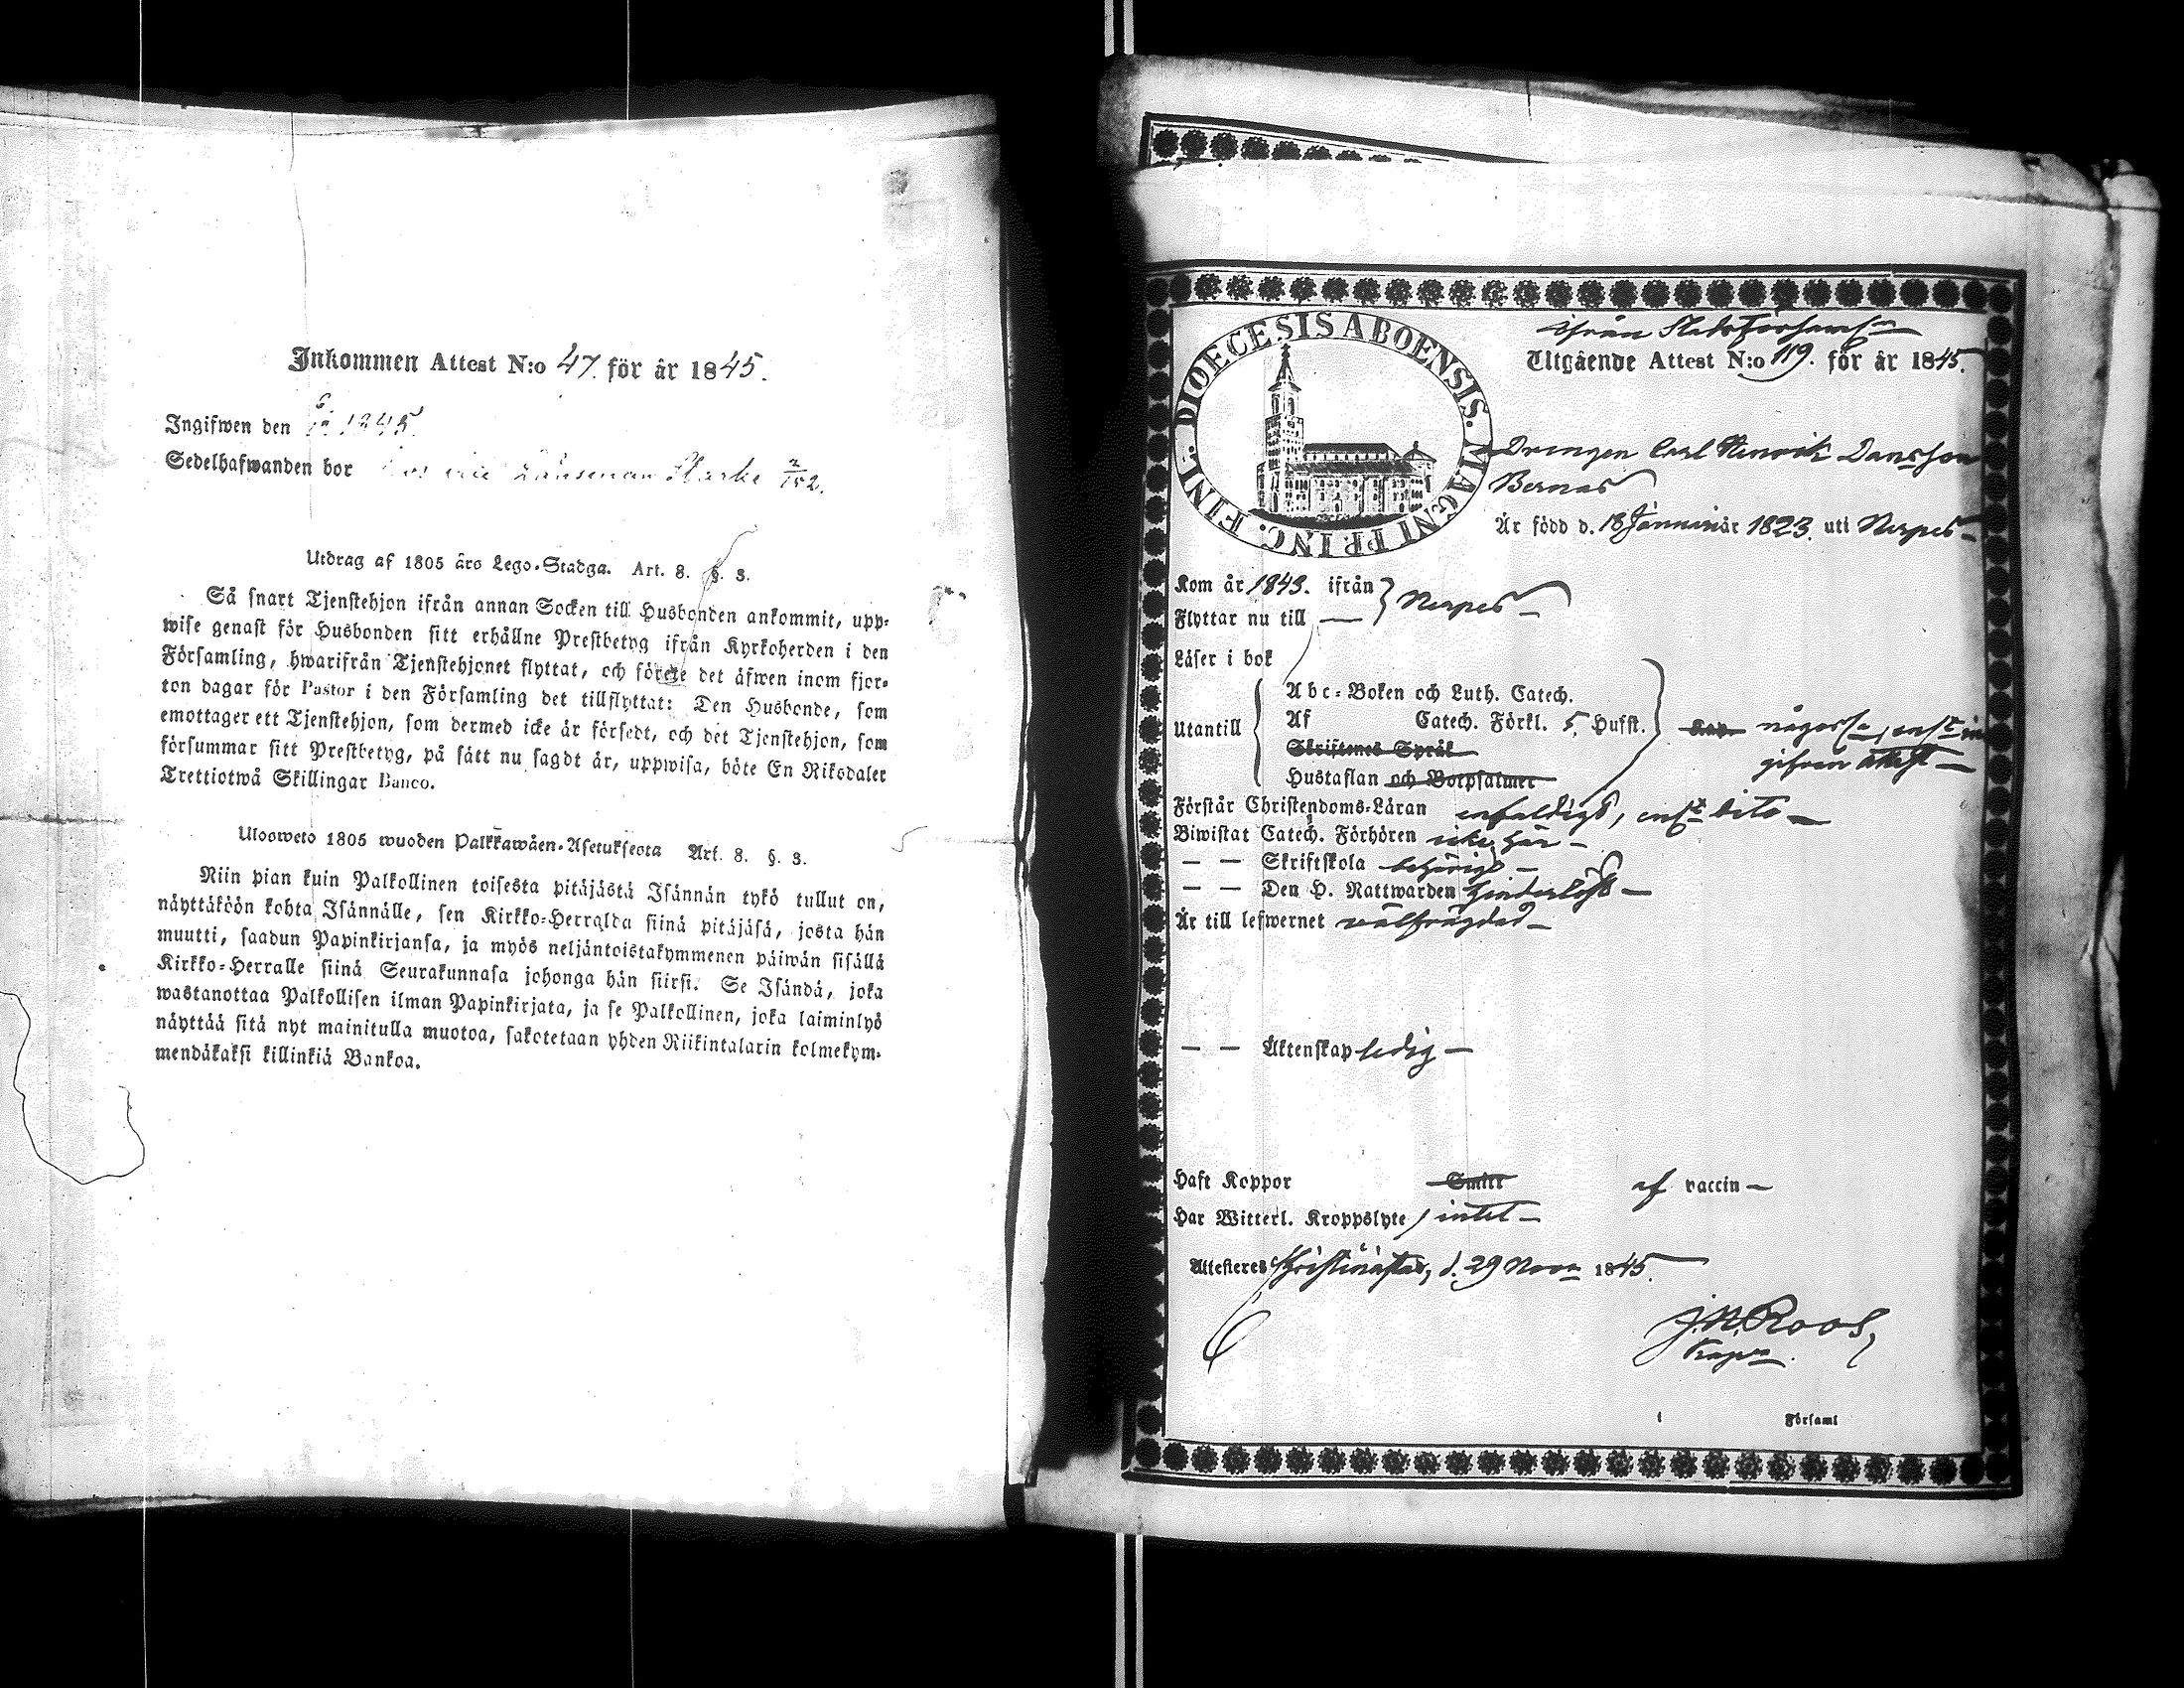 Inkommen Attest N:o 47. för år 1845.
Ingifwen den 6/12 1845.
Sedelhafwanden bor Länsman 2/152.
Utdrag af 1805 års Lego-Stadga. Art. 8. §. 3.
Så snart Tjenstehjon ifrån annan Socken till Husbonden ankommit, upp-
wise genast för Husbonden sitt erhållne Prestbetyg ifrån Kyrkoherden i den
Församling, hwarifrån Tjenstehjonet flyttat, och förete det äfwen inom fjor-
ton dagar för Pastor i den Församling det tillflyttat: Den Husbonde, som
emottager ett Tjenstehjon, som dermed icke är försedt, och det Tjenstehjon, som
försummar sitt Prestbetyg, på sätt nu sagdt är, uppwisa, böte En Riksdaler
Trettiotwå Skillingar Banco.
Ulosweto 1805 wuoden Palkkawäen-Asetuksesta Art. 8. §. 3.
Niin pian kuin Palkollinen toisesta pitäjästä Isännän tykö tullut on,
näyttäköön kohta Isännälle, sen Kirkko-Herralda siinä pitäjäsä, josta hän
muutti, saadun Papinkirjansa, ja myös neljäntoistakymmenen päiwän sisällä
Kirkko-Herralle siinä Seurakunnasa johonga hän siirsi. Se Isändä, joka
wastanottaa Palkollisen ilman Papinkirjata, ja se Palkollinen, joka laiminlyö
näyttää sitä nyt mainitulla muotoa, sakotetaan yhden Riikintalarin kolmekym-
mendäkaksi killinkiä Bankoa.
DIOECESIS ABOENSIS. MAGNI PRINC. FINL.
ifrån Stadsförsaml:n
Utgående Attest N:o 119. för år 1845.
Drengen Carl Henrik Dansson
Bernas
Är född d. 18 Januarii år 1823. uti Nerpes
Kom år 1843. ifrån } Nerpes
Flyttar nu till
Läser i bok
Abc-Boken och Luth. Catech.
Utantill Af Catech. Förkl. 5. Hufst. någorl:a, enl:t in
Skriftenes Språk
gifven attest
Hustaflan och Botpsalmer
Förstår Christendoms-Läran enfaldigt, enl:t dito
Biwistat Catech. Förhören icke här
— — Skriftskola behörigt
— — Den H. Nattwarden hinderlöst
Är till lefwernet wälfrägdad
— — Äktenskap ledig
Haft Koppor Smitt af vaccin
Har Witterl. Kroppslyte intet
Attesteres Christinæstad, d. 29 Nov:r 1845.
J. N. Roos,
i Församl